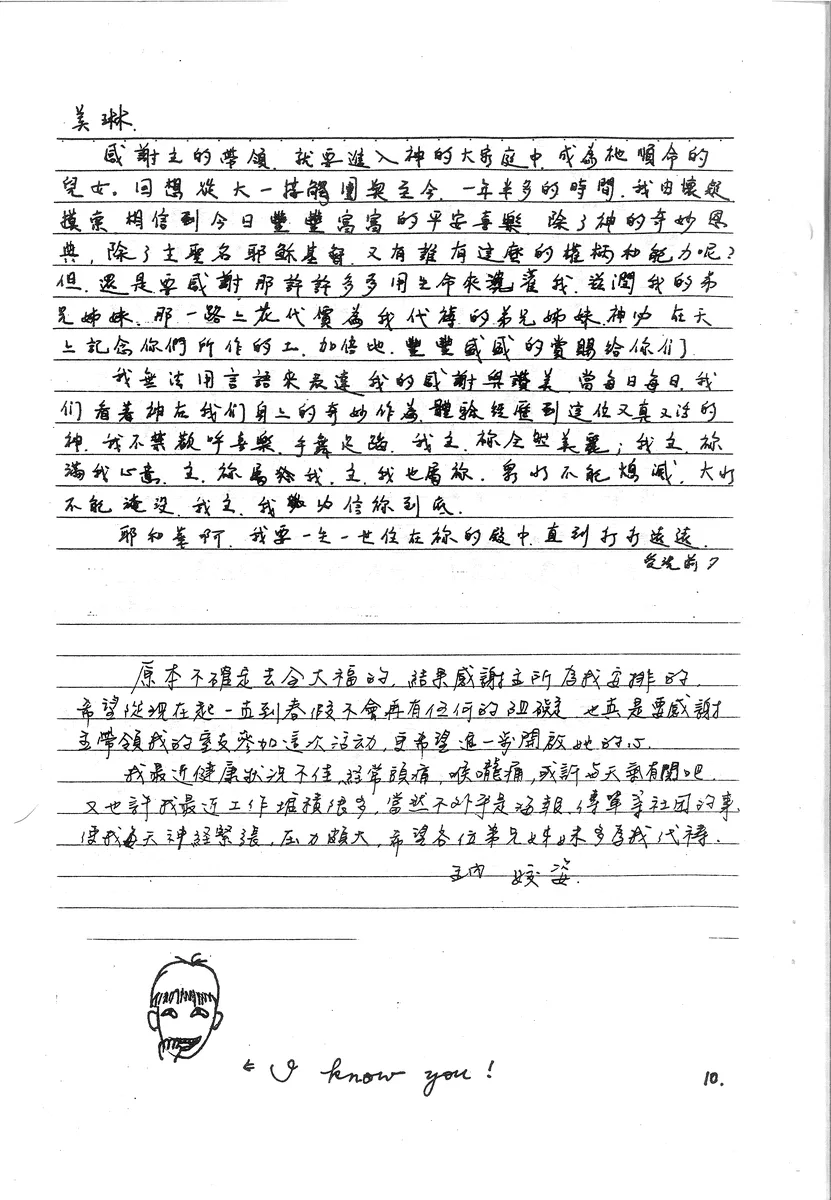 美琳.
感謝主的帶領.就要進入神的大家庭中.成為祂順命的
兒女。回想從大一接觸團契至今.一年半多的時間.我由懷疑
摸索.相信到今日豐豐富富的平安喜樂.除了神的奇妙恩
典,除了主聖名耶穌基督.又有誰有這麼的權柄和能力呢?
但.還是要感謝那許許多多用生命來澆灌我.滋潤我的弟
兄姊妹.那一路上花代價為我代禱的弟兄姊妹.神必在天
上記念你們所作的工.加倍地.豐豐盛盛的賞賜給你们
我無法用言語來表達我的感謝與讚美.當每日每日.我
们看著神在我们身上的奇妙作為.體驗經歷到這位又真又活的
神.我不禁歡呼喜樂.手舞足蹈.我主.祢全然美麗;我主.祢
滿我心意.主.祢屬於我.主.我也屬祢.眾水不能熄滅.大水
不能淹沒.我主.我必信祢到底.
耶和華啊.我要一生一世住在祢的殿中.直到永永遠遠.
受洗前夕
原本不確定去全大福的,結果感謝主所為我安排的.
希望從現在起一直到春假不會再有任何的阻礙.也真是要感謝
主帶領我的室友參加這次活動,更希望進一步開啟她的心.
我最近健康狀況不佳,經常頭痛,喉嚨痛,或許与天氣有関吧.
又也許我最近工作堆積很多,當然不外乎是海報.傳單等社团的事,
使我每天神經緊張,压力頗大,希望各位弟兄姊妹多為我代禱.
主內 姣姿.
← I know you!
10.